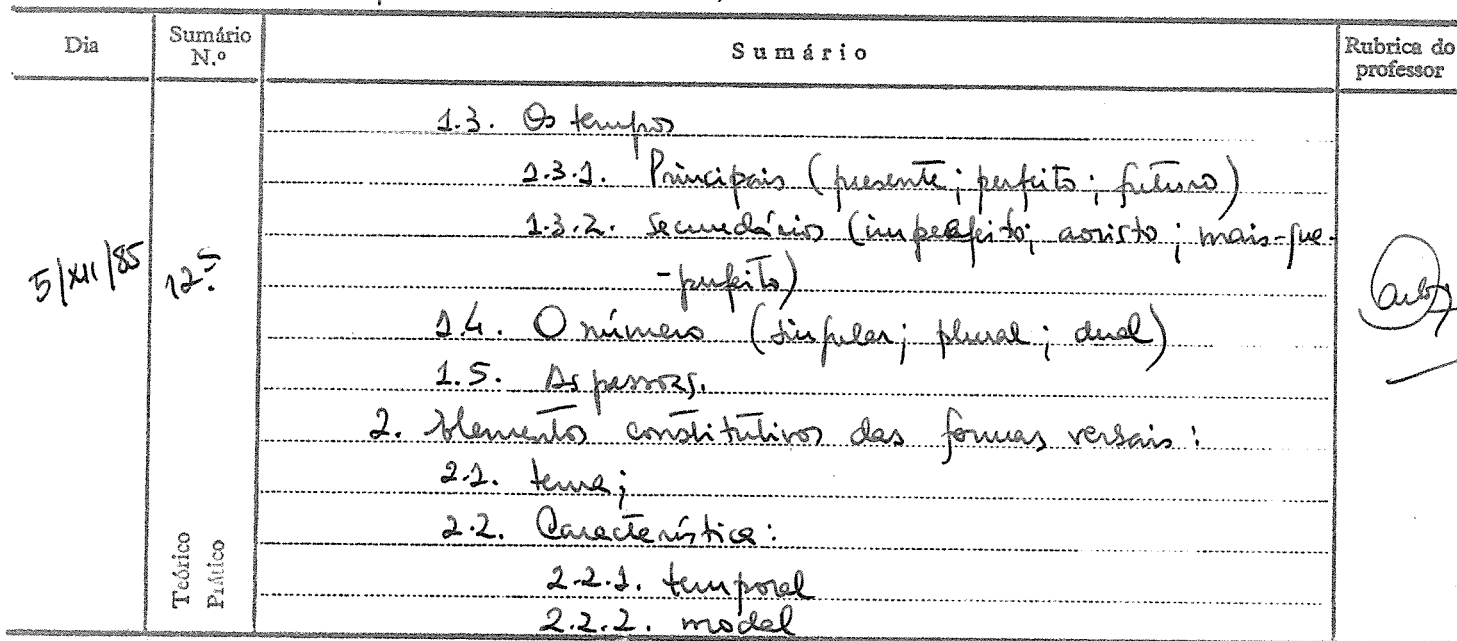 Dia
Sumário N.º
Sumário
Rubrica do professor
1.3. Os tempos
1.3.1. Principais (presente; perfeito; futuro)
1.3.2. Secundários (imperfeito; aoristo; mais-que-
-perfeito)
5/XII/85
12º
1.4. O número (singular; plural; dual)
1.5. As pessoas.
2. Elementos constitutivos das formas verbais:
2.1. tema;
2.2. Característica:
2.2.1. temporal
2.2.2. modal
Teórico
Prático